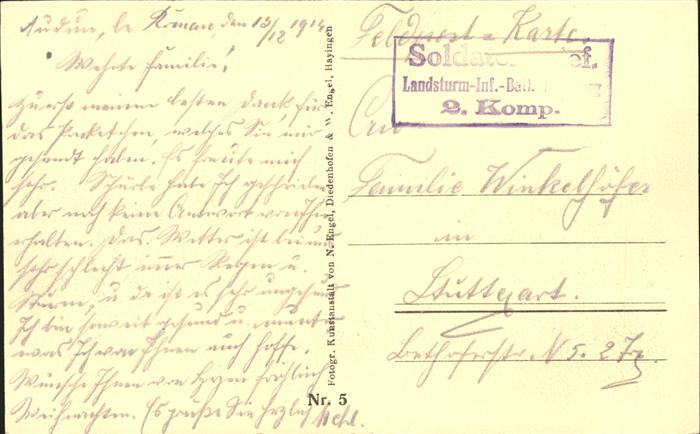 Audun, le Roman, den 13/12 1914
Werte Familie!
Zuerst meinen besten Dank für
das Packetchen, welches Sie mir
gesandt haben. Es freute mich
sehr. Schürle habe Ich geschrieben
aber noch keine Antwort von Ihm
erhalten. Das Wetter ist bei uns
sehr schlecht imer Regen u.
Sturm, u da ist es sehr ungesund
Ich bin soweit gesund u. munter
was Ich von Ihnen auch hoffe.
Wünsche Ihnen von Herzen fröhlich
Weihnachten. Es grüßt Sie herzlich
Photogr. Kunstanstalt von N. Engel, Diedenhofen & W. Engel, Hayingen
Nr. 5
Feldpost-Karte.
Soldatenbrief.
Landsturm-Inf.-Batl.
2. Komp.
An
Familie Winkelhöfer
in
Stuttgart.
N 5. 2 Tr.